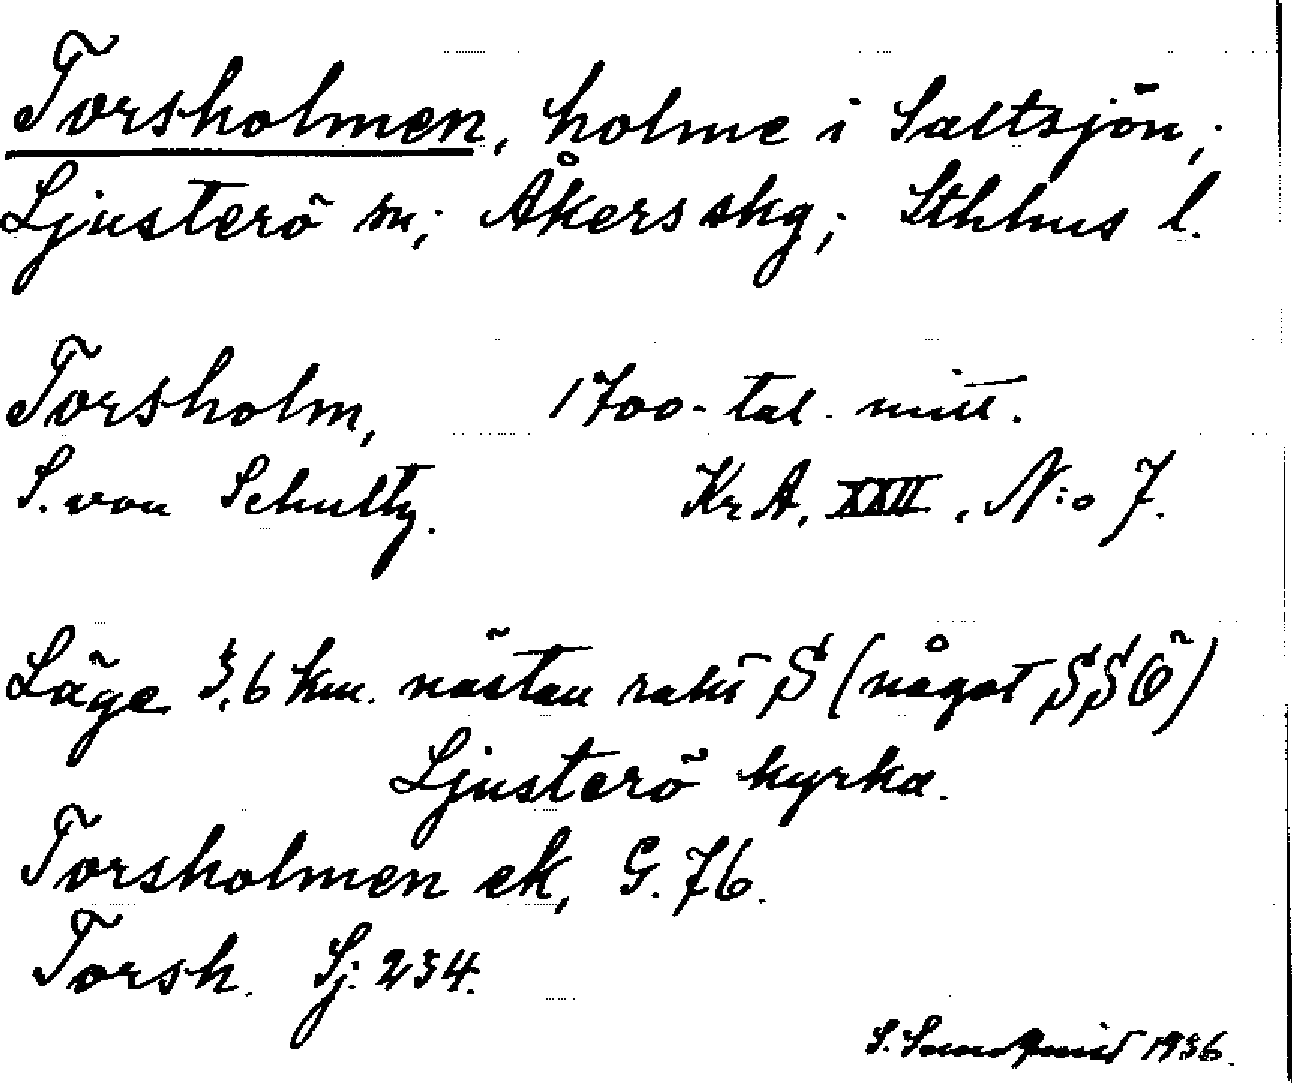 Torsholmen, holme i Saltsjön;
Ljusterö sn; Åkers skg; Sthlms l.
Torsholm, 1700-tal. mitt.
S. von Schultz. Kr A, XXII, N:o 7.
Läge 3,6 km. nästan rakt S (något SSÖ)
Ljusterö kyrka.
Torsholmen ek, G. 76.
Torsh. Sj. 234.
S. 1936.